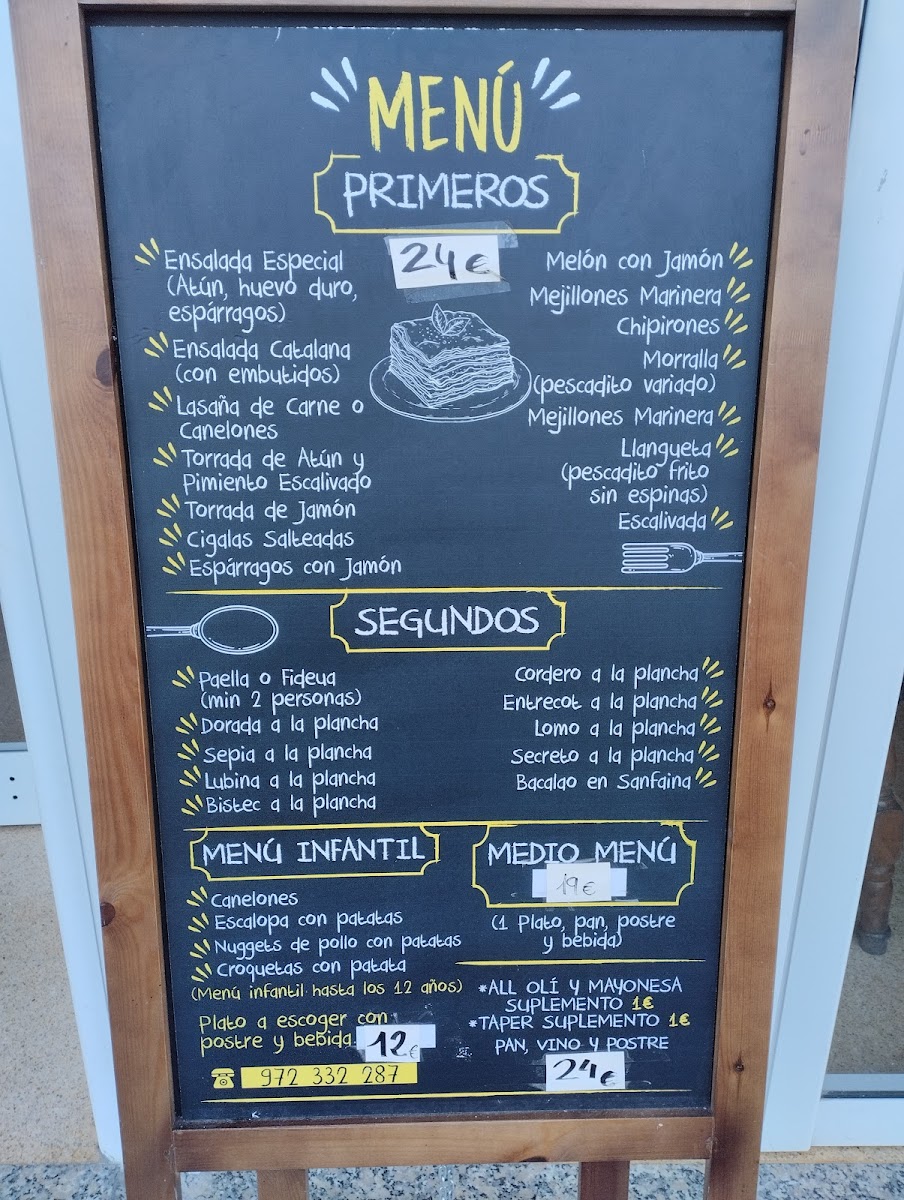 MENÚ
PRIMEROS
24€
Ensalada Especial
(Atún, huevo duro,
espárragos)
Ensalada Catalana
(con embutidos)
Lasaña de Carne o
Canelones
Torrada de Atún y
Pimiento Escalivado
Torrada de Jamón
Cigalas Salteadas
Espárragos con Jamón
Melón con Jamón
Mejillones Marinera
Chipirones
Morralla
(pescadito variado)
Mejillones Marinera
Llangueta
(pescadito frito
sin espinas)
Escalivada
SEGUNDOS
Paella o Fideua
(min 2 personas)
Dorada a la plancha
Sepia a la plancha
Lubina a la plancha
Bistec a la plancha
Cordero a la plancha
Entrecot a la plancha
Lomo a la plancha
Secreto a la plancha
Bacalao en Sanfaina
MENÚ INFANTIL
Canelones
Escalopa con patatas
Nuggets de pollo con patatas
Croquetas con patata
(Menú infantil hasta los 12 años)
Plato a escoger con
postre y bebida 12€
972 332 287
MEDIO MENÚ
19€
(1 Plato, pan, postre
y bebida)
*ALL OLÍ Y MAYONESA
SUPLEMENTO 1€
*TAPER SUPLEMENTO 1€
PAN, VINO Y POSTRE
24€